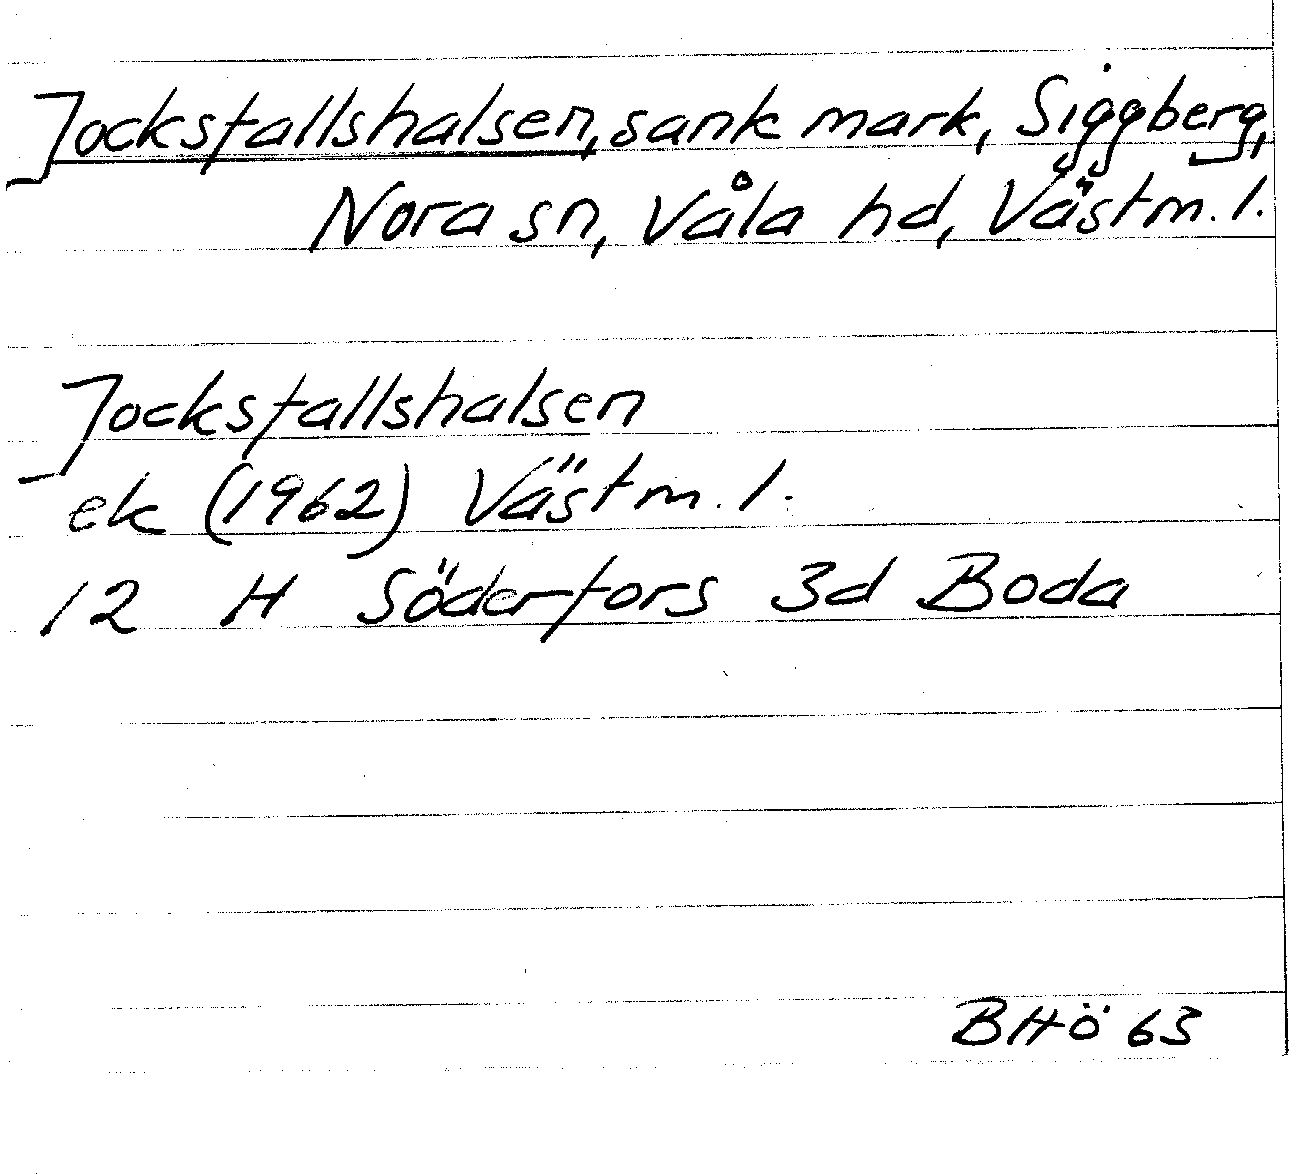 Jocksfallshalsen, sank mark, Siggberg,
Nora sn, Våla hd, Västm. l.
Jocksfallshalsen
ek (1962) Västm. l.
12 H Söderfors 3d Boda
BHö 63